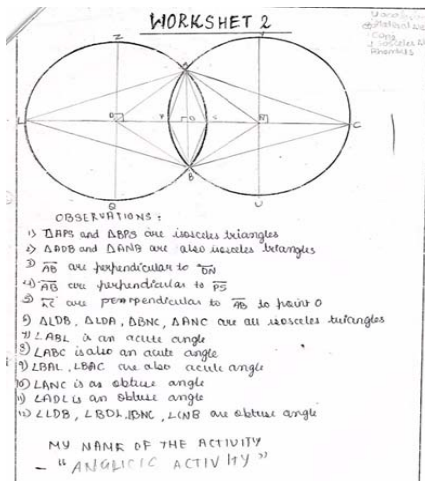 WORKSHET 2
Z
A
L
D
P
O
S
N
C
B
Q
U
OBSERVATIONS:
1) ΔAPS and ΔBPS are isosceles triangles
2) ΔADB and ΔANB are also isosceles triangles
3) AB are perpendicular to DN
4) AB are perpendicular to PS
5) LC are perpendicular to AB to point O
6) ΔLDB, ΔLDA, ΔBNC, ΔANC are all isosceles triangles
7) ∠ABL is an acute angle
8) ∠ABC is also an acute angle
9) ∠BAL, ∠BAC are also acute angle
10) ∠ANC is as obtuse angle
11) ∠ADL is an obtuse angle
12) ∠LDB, ∠BDL, BNC, ∠CNB are obtuse angle
MY NAME OF THE ACTIVITY
- "ANGLICIC ACTIVITY"